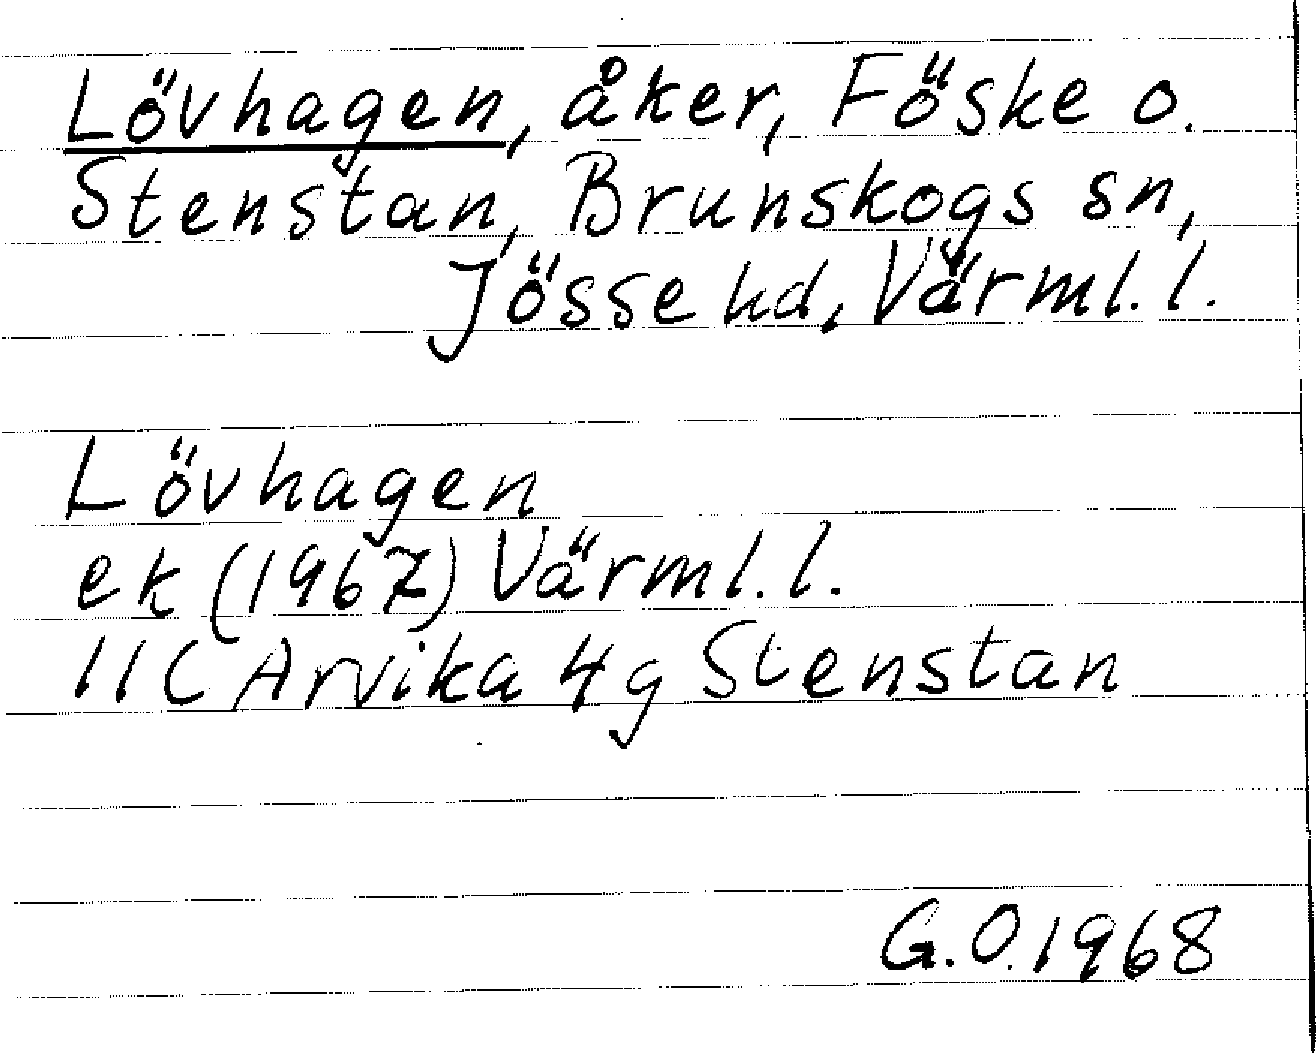 Lövhagen, åker, Föske o.
Stenstan, Brunskogs sn,
Jösse hd, Värml. l.
Lövhagen
ek (1967) Värml. l.
11C Arvika 4g Stenstan
G.O. 1968